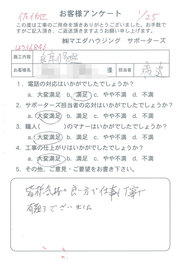 お客様アンケート
1/25
この度は工事のご発注を頂きありがとうございました。お手数で
すがご記入頂き、ご返送頂きますようお願い申し上げます。
㈱マエダハウジング サポーターズ
施工内容
お客様名
様
担当
1. 電話の対応はいかがでしたでしょうか?
a. 大変満足 b. 満足 c. やや不満 d. 不満
2. サポーターズ担当者の対応はいかがでしたでしょうか?
a. 大変満足 b. 満足 c. やや不満 d. 不満
3. 職人( )のマナーはいかがでしたでしょうか?
a. 大変満足 b. 満足 c. やや不満 d. 不満
4. 工事の仕上がりはいかがでしたでしょうか?
a. 大変満足 b. 満足 c. やや不満 d. 不満
5. その他、ご意見・ご要望をお書き下さい。
良い方で仕事も丁寧で
ございました